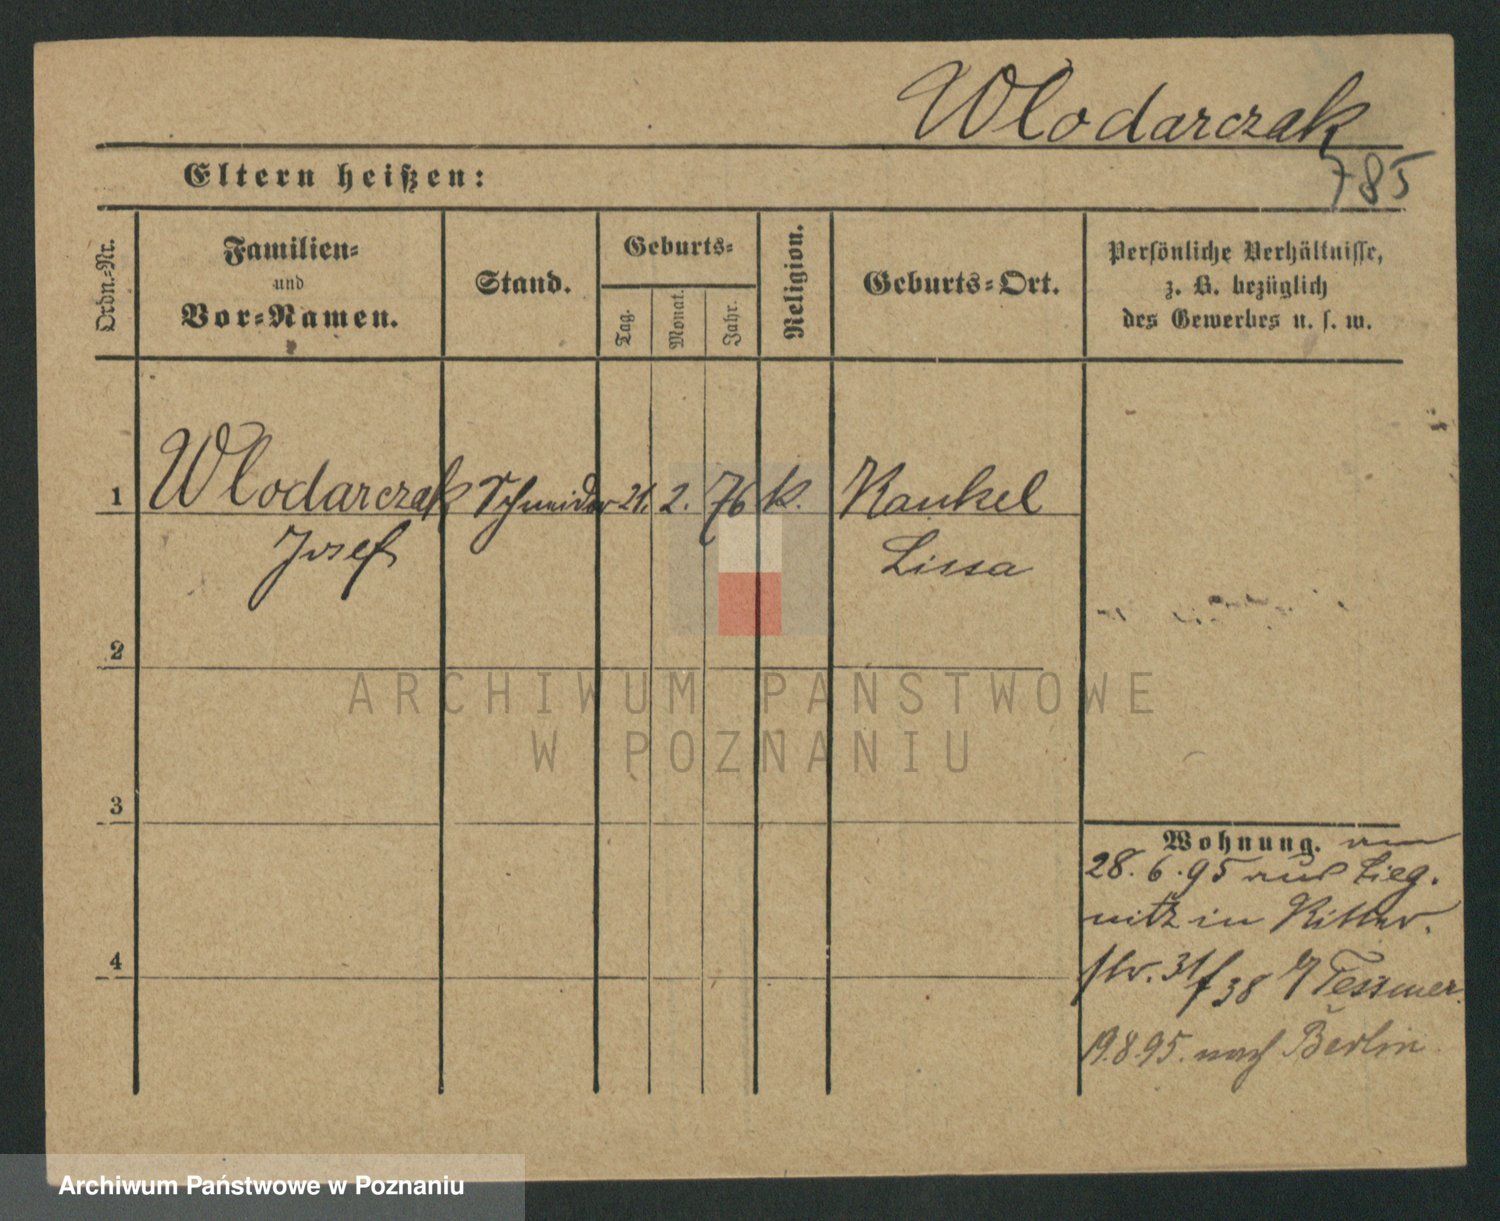 Wlodarczak
785
Eltern heißen:
Ordn.-Nr.
Familien-
und
Vor-Namen.
Stand.
Geburts-
Tag.
Monat.
Jahr.
Religion.
Geburts-Ort.
Persönliche Verhältnisse,
z. B. bezüglich
des Gewerbes u. s. w.
1 Wlodarczak Schneider 21. 2. 76 k. Kankel
Josef Lissa
2
3
4
Wohnung. am
28. 6. 95 aus Lieg-
nitz in Ritter-
str. 31/38 Tessmer.
19.8.95. nach Berlin
ARCHIWUM PAŃSTWOWE
W POZNANIU
Archiwum Państwowe w Poznaniu